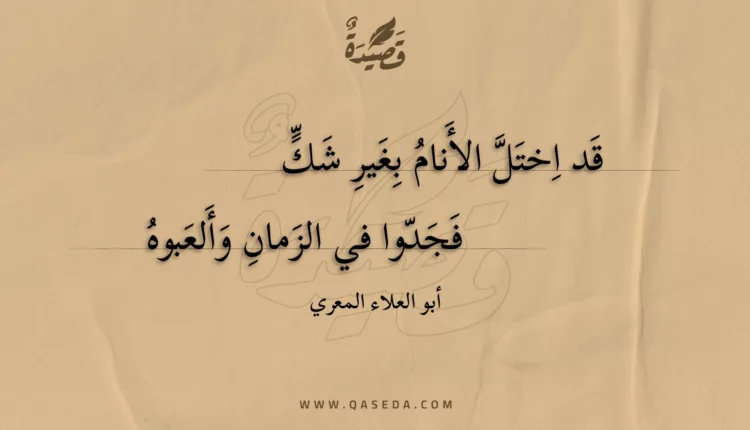 قَصِيدَةٌ
قَد اِختَلَّ الأَنامُ بِغَيرِ شَكٍّ
فَجَدّوا في الزَمانِ وَأَلعَبوهُ
أبو العلاء المعري
WWW.QASEDA.COM